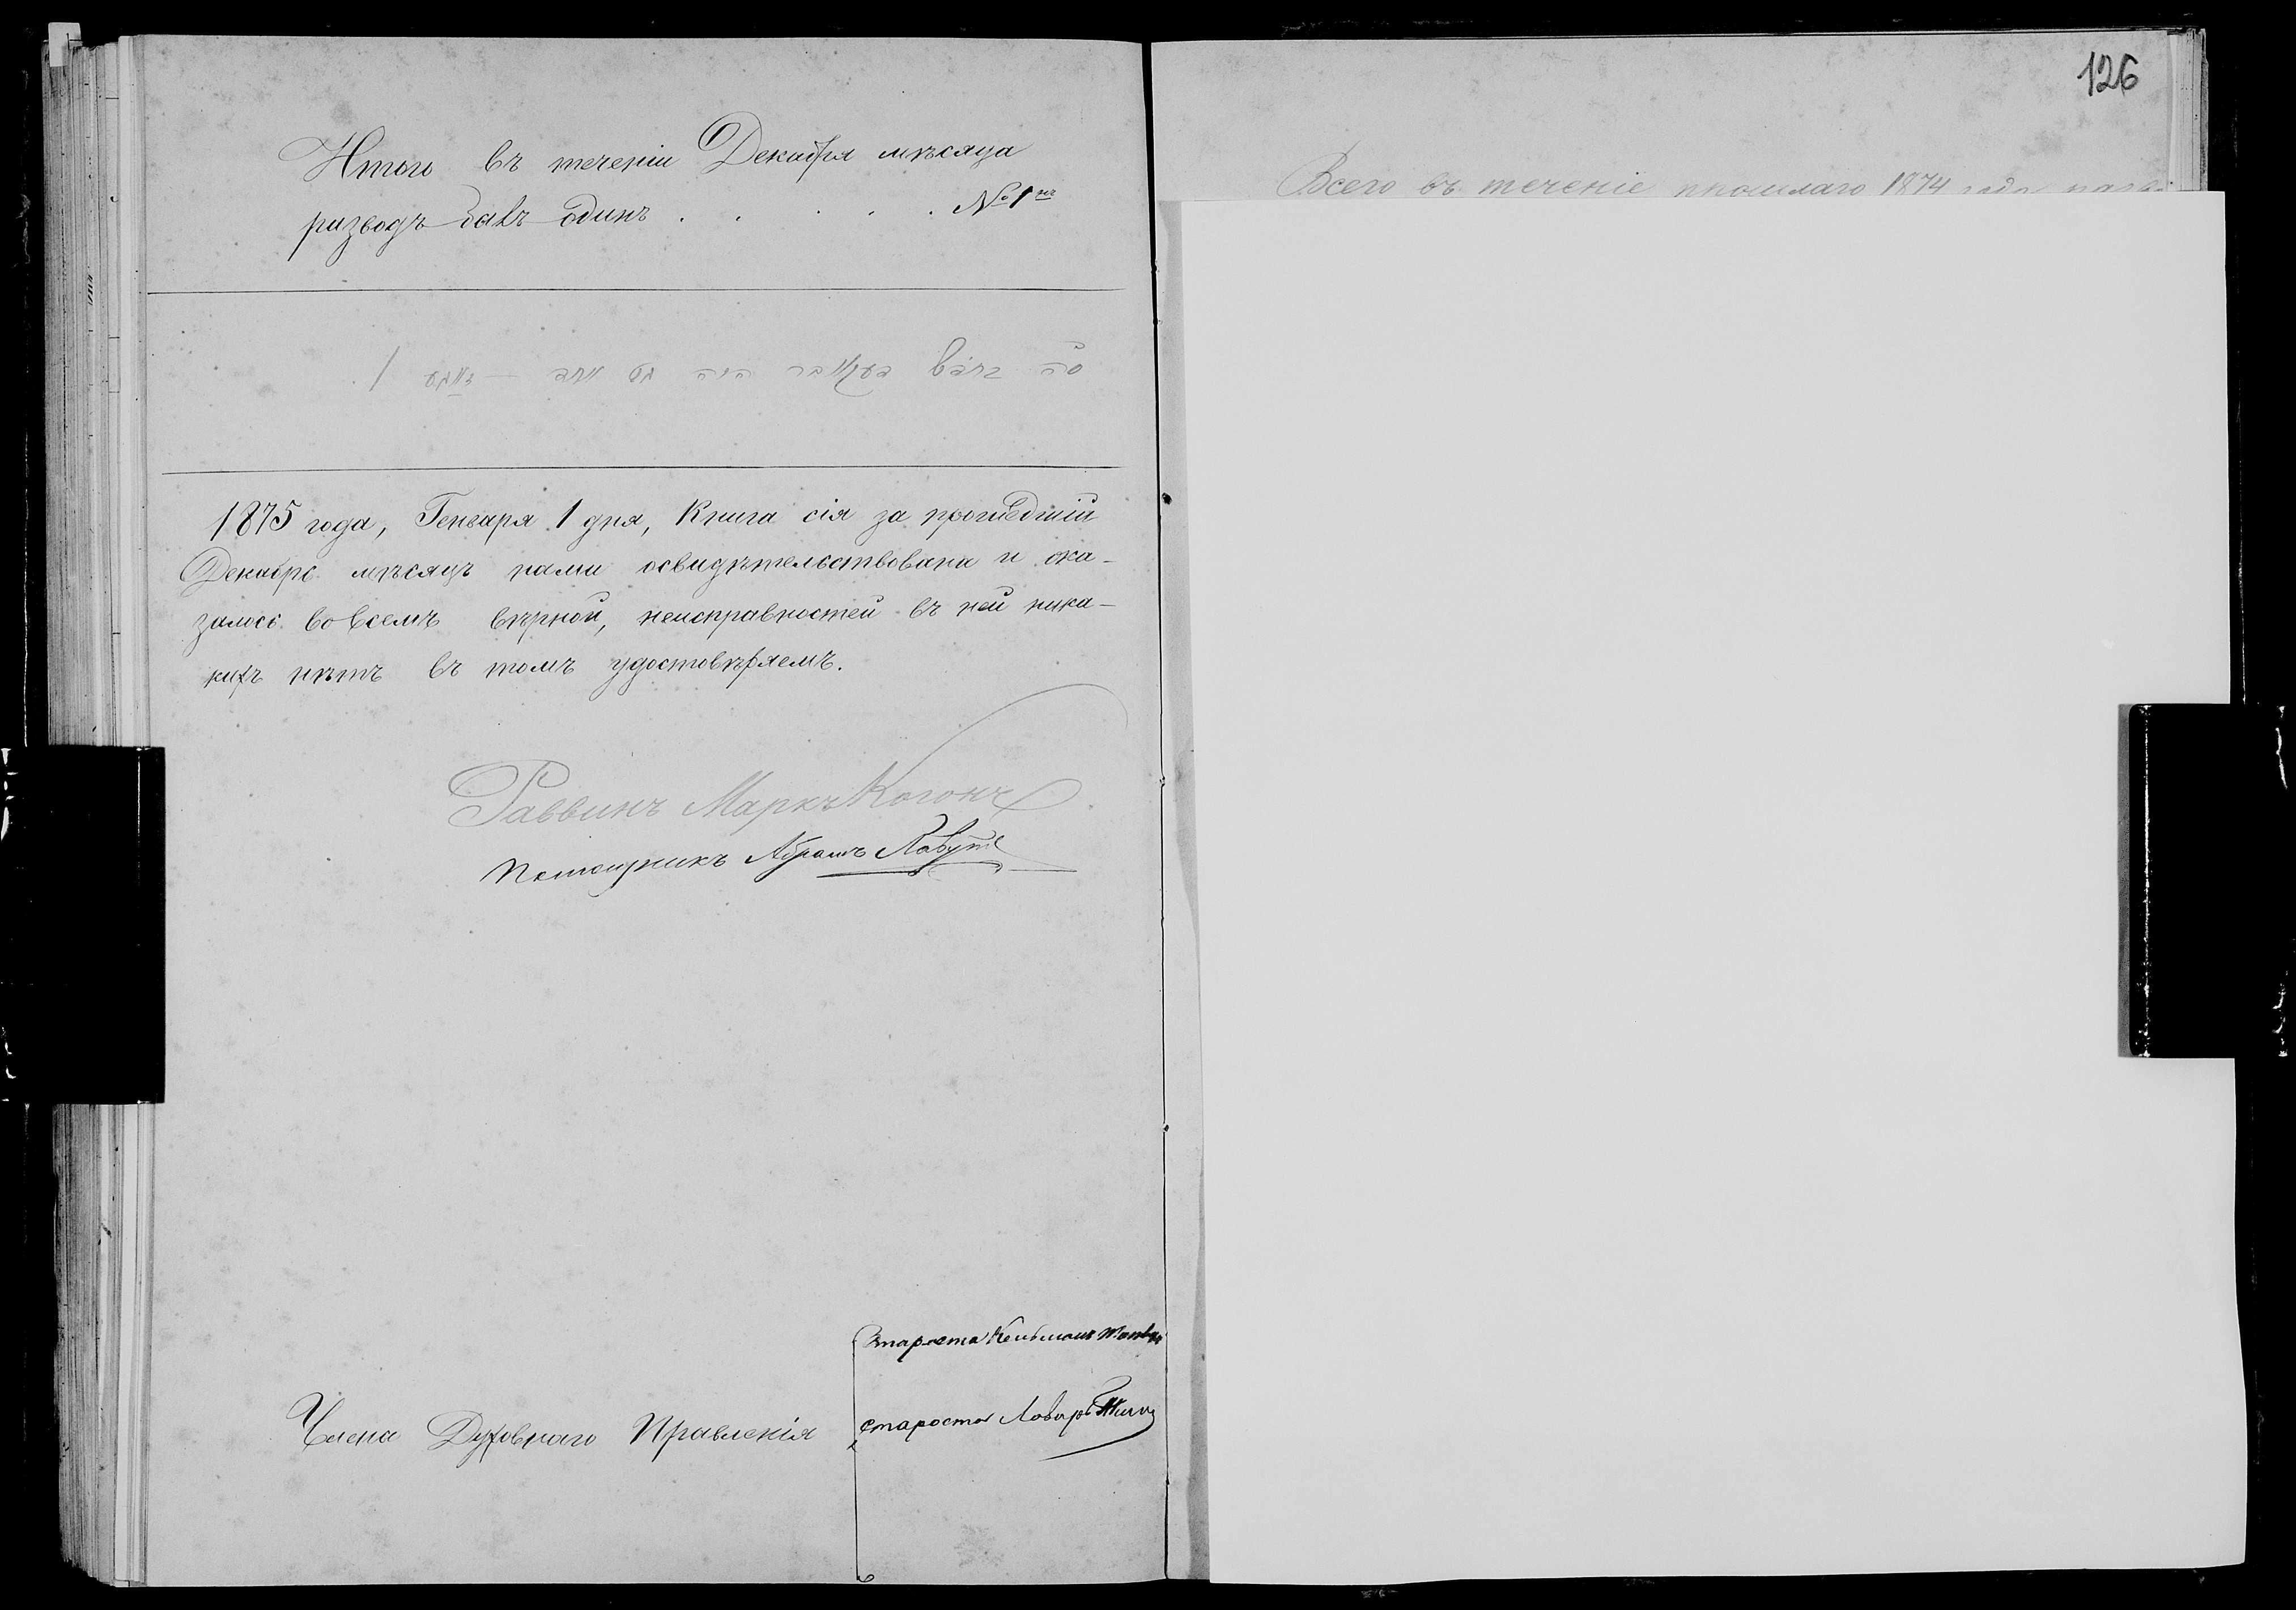 Итого въ теченіи Декабря мѣсяца
разводъ былъ одинъ . . . . . № 1й
סה״ בחדש דעקאבר היה גט אחד — 1
1875 года, Генваря 1 дня, Книга сія за прошедшій
Декабрь мѣсяцъ нами освидѣтельствована и ока-
залось вовсемъ вѣрной, неисправностей въ ней ника-
кихъ нѣтъ въ томъ удостовѣряемъ.
Раввинъ Маркъ Когонъ
Абрамъ
Староста Кельманъ
Члена Духовнаго Правленія
староста Лазарь
126
Всего въ теченіе прошлаго 1874 года